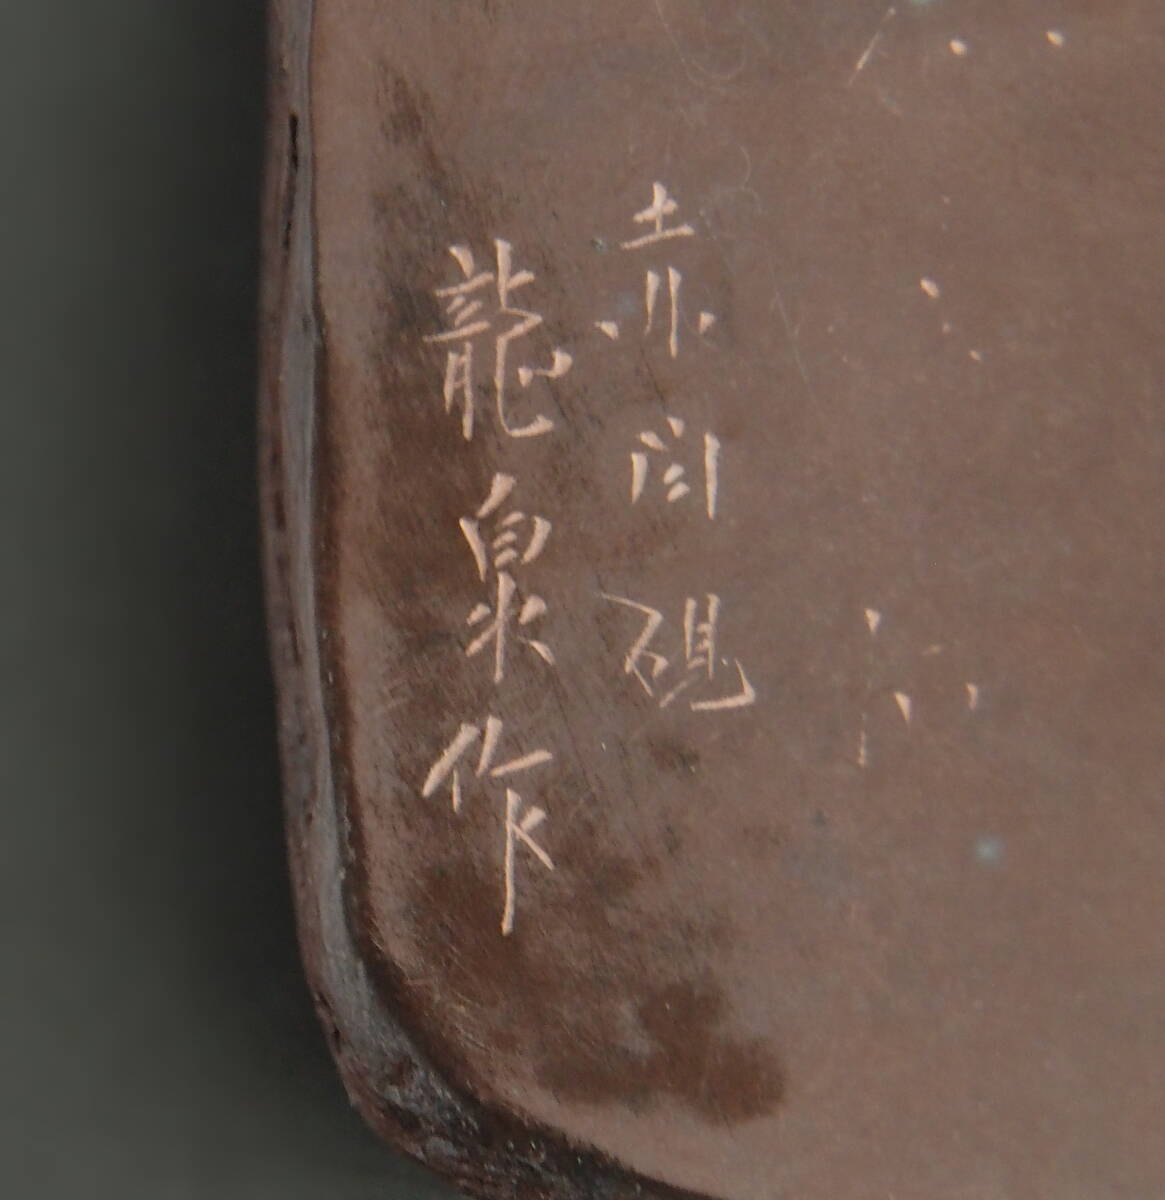 赤间硯
龍泉作